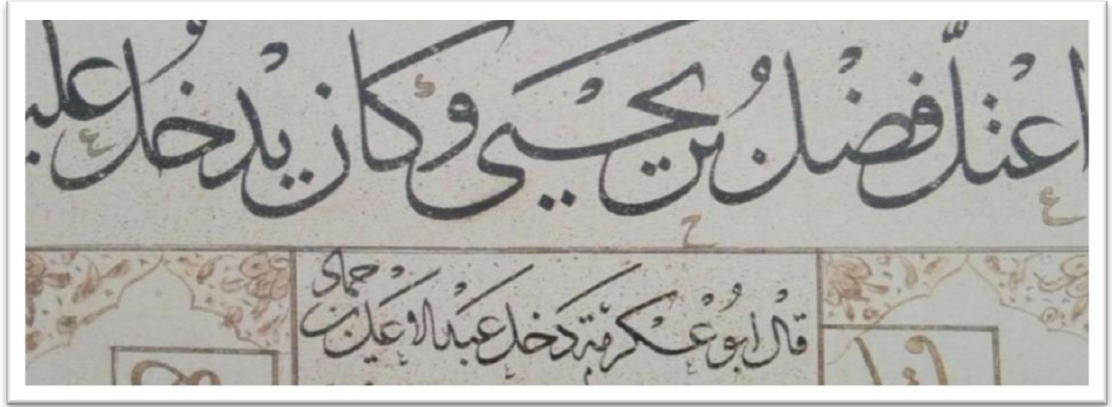 اعتلّ فضْل بن يحيْى وكان يدْخل عليـ
قال ابو عكرمة دخل عبد الاعلى بن حماد